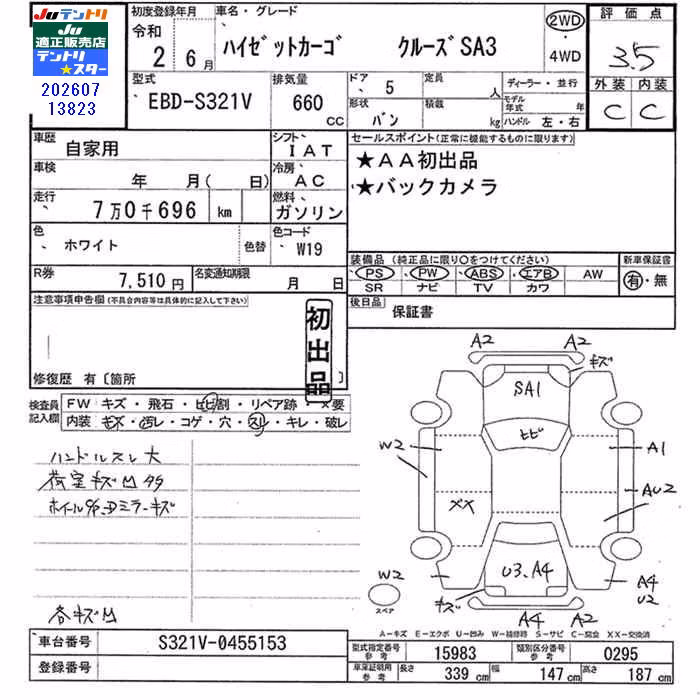 Juテントリ
Ju
適正販売店
テントリ
★スター
202607
13823
初度登録年月
令和
2 6月
車名・グレード
ハイゼットカーゴ クルーズSA3
2WD
・
4WD
評価点
3.5
外装 内装
C C
型式
EBD-S321V
排気量
660
CC
ドア
5
形状
バン
定員
人
積載
kg
ディーラー・並行
モデル年式 年
ハンドル 左・右
車歴
自家用
シフト
IAT
車検
年 月( 日)
冷房
AC
走行
7万0千696 km
燃料
ガソリン
色
ホワイト
色替
色コード
W19
R券
7,510円
名変通知期限
月 日
セールスポイント(正常に機能するものに限ります)
★AA初出品
★バックカメラ
装備品(純正品に限り○をつけてください)
PS PW ABS エアB AW
SR ナビ TV カワ
新車保証書
有・無
後日品
保証書
注意事項申告欄(不具合内容等は具体的に記入して下さい)
初出品
修復歴 有〔箇所 〕
検査員記入欄
FW キズ・飛石・ヒビ割・リペア跡・×要
内装 キズ・汚レ・コゲ・穴・スレ・キレ・破レ
ハンドルスレ大
荷室キズ凹多
ドミラーキズ
各キズ凹
A2 A2
キズ
SA1
ヒビ
W2
A1
XX
AU2
W2
U3.A4
A4
U2
キズ
A4 A2
スペア
A-キズ E-エクボ U-凹み W-補修跡 S-サビ C-腐食 XX-交換済
車台番号
S321V-0455153
登録番号
型式指定番号
参考
15983
類別区分番号
参考
0295
車庫証明用
参考
長さ
339 cm
幅
147 cm
高さ
187 cm